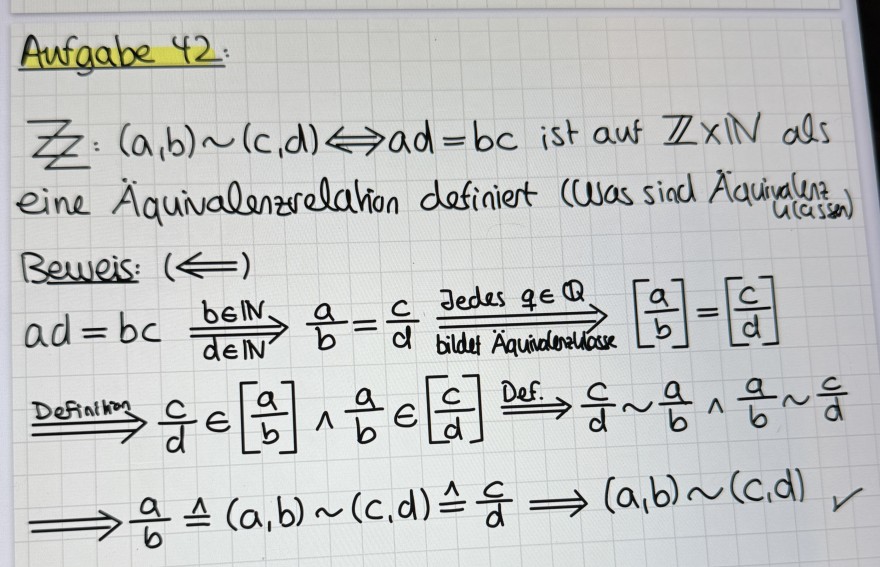 Aufgabe 42:
ZZ: (a,b) ~ (c,d) ⟺ ad = bc ist auf ℤ×ℕ als
eine Äquivalenzrelation definiert (Was sind Äquivalenzklassen)
Beweis: (⟸)
ad = bc ⟹[b∈ℕ, d∈ℕ] a/b = c/d ⟹[Jedes q∈ℚ bildet Äquivalenzklasse] [a/b] = [c/d]
⟹[Definition] c/d ∈ [a/b] ∧ a/b ∈ [c/d] ⟹[Def.] c/d ~ a/b ∧ a/b ~ c/d
⟹ a/b ≙ (a,b) ~ (c,d) ≙ c/d ⟹ (a,b) ~ (c,d) ✓